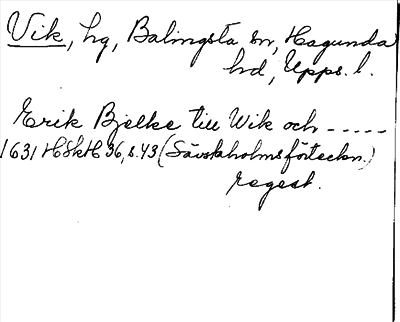 Vik, hg, Balingsta sn, Hagunda
hd, Upps. l.
Erik Bjelke till Wik och -----
1631 HSkH 36, s. 43 (Sävstaholmsförteckn.)
regest.